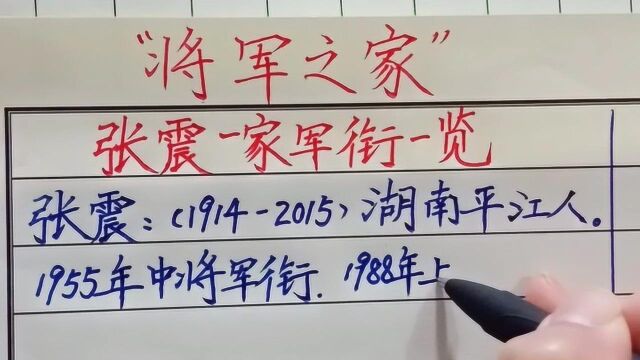 “将军之家”
张震一家军衔一览
张震：(1914-2015)湖南平江人。
1955年中将军衔．1988年上